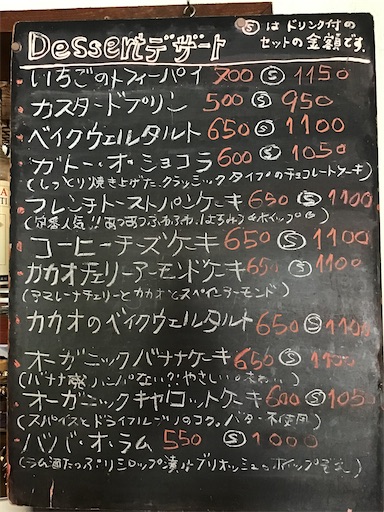 Dessertデザート
Ⓢはドリンク付の
セットの金額です。
いちごのトフィーパイ 700 Ⓢ 1150
カスタードプリン 500 Ⓢ 950
ベイクウェルタルト 650 Ⓢ 1100
ガトー・オ・ショコラ 600 Ⓢ 1050
(しっとり焼き上げたクラシックタイプのチョコレートケーキ)
フレンチトーストパンケーキ 650 Ⓢ 1100
(定番人気!!あつあつふわふわ、はちみつ ホイップ
コーヒーチズケーキ 650 Ⓢ 1100
カカオチェリーアーモンドケーキ 650 Ⓢ 1100
(アマレーナチェリーとカカオとスペインアーモンド)
カカオのベイクウェルタルト 650 Ⓢ 1100
オーガニックバナナケーキ 650 Ⓢ 1100
(バナナ感ハンパない?!やさしい
オーガニックキャロットケーキ 600 Ⓢ 1050
(スパイスとドライフルーツのコク。バター不使用)
ババ・オ・ラム 550 Ⓢ 1000
(ラム酒たっぷりシロップ漬けブリオッシュ ホイップ